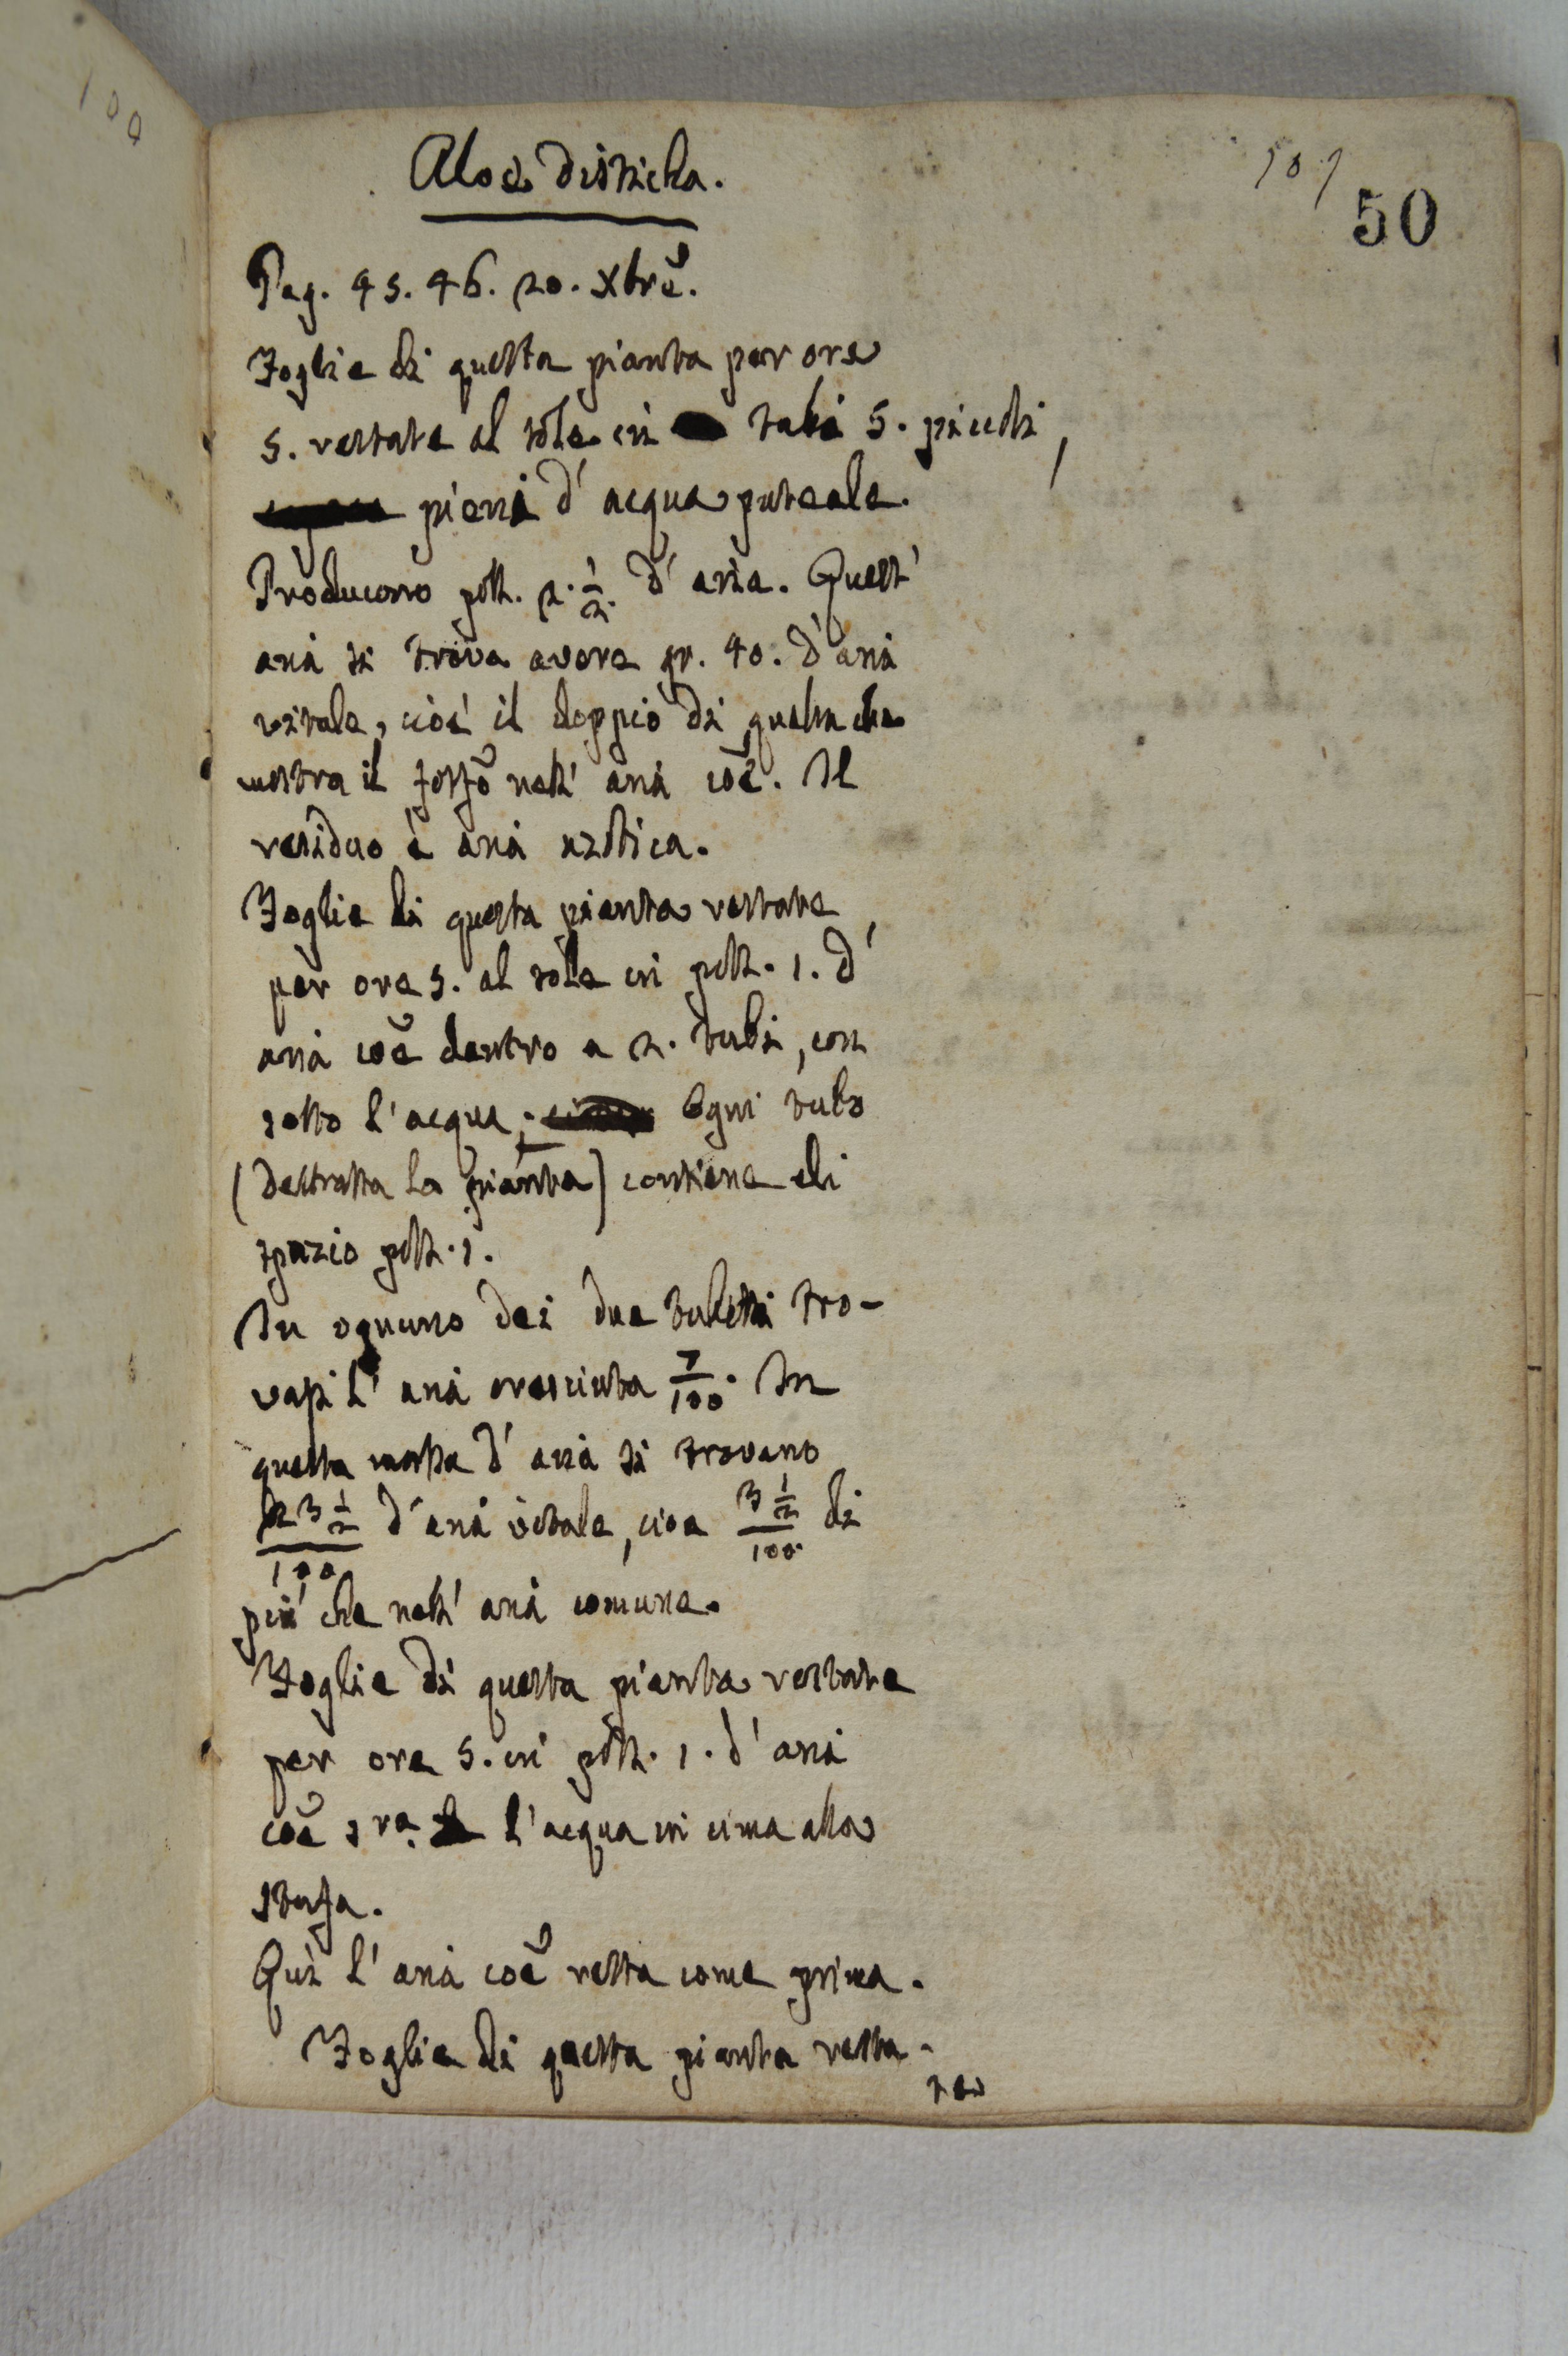 100
101
50
Aloè disticha.
Pag. 45. 46. 20. Xbrẽ.
Foglie di questa pianta per ore
5. restate al sole in tubi 5. piccoli,
pieni d' acqua puteale.
Producono poll. 2. 1/2. d' aria. Quest'
aria si trova avere gr. 40. d' aria
vitale, cioè il doppio di quella che
mostra il fosfõ nell' aria coẽ. Il
residuo è aria azotica.
Foglie di questa pianta restate
per ore 5. al sole in poll. 1. d'
aria coẽ dentro a 2. tubi, con
sotto l'acqua; Ogni tubo
(destratta la pianta) contiene di
spazio poll. 1.
In ognuno dei due tubetti tro-
vasi l' aria cresciuta 7/100. In
questa massa d' aria si trovano
23 1/2/100 d' aria vitale, cioe 3 1/2/100 di
più che nell' aria comune.
Foglie di questa pianta restate
per ore 5. in poll. 1. d' aria
coẽ sra. l'acqua in cima alla
stufa.
Qui l' aria coẽ resta come prima.
Foglie di questa pianta resta-
te